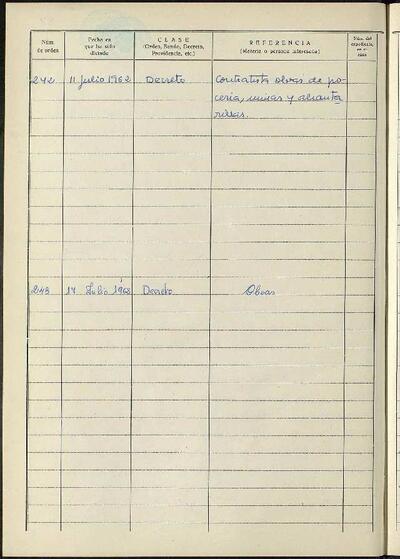 Núm. de orden
Fecha en que ha sido dictado
CLASE
(Orden, Bando, Decreto, Providencia, etc.)
REFERENCIA
(Materia o persona interesada)
Núm. del expediente
242 11 Julio 1962 Decreto Contratista obras de po-
cería, minas y alcanta
rillas.
243 17 Julio 1962 Decreto Obras